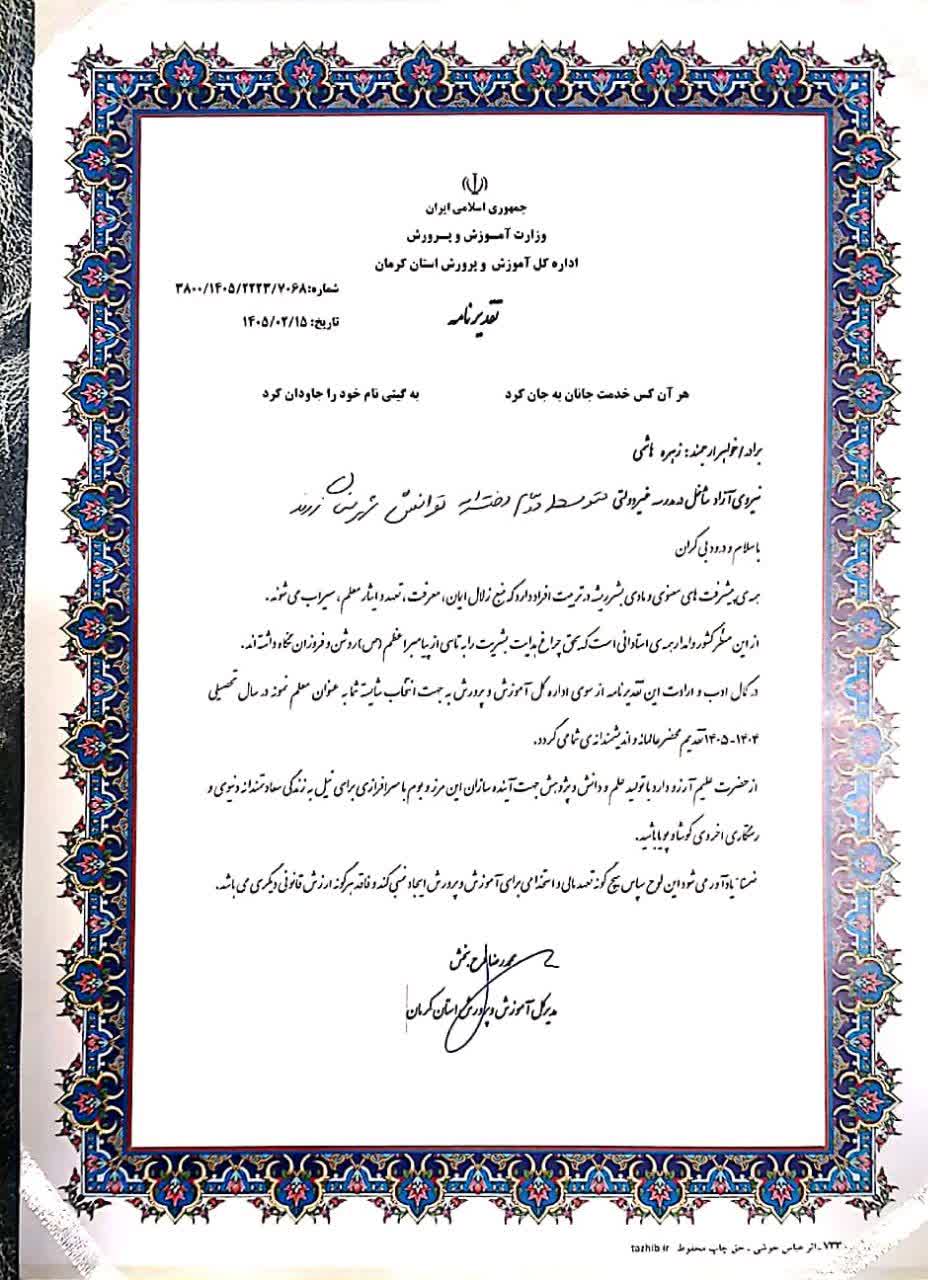 جمهوری اسلامی ایران
وزارت آمـوزش و پـرورش
اداره کل آموزش و پرورش استان کرمان
شماره: ۳۸۰۰/۱۴۰۵/۲۲۲۳/۷۰۶۸
تقدیرنامه
تاریخ: ۱۴۰۵/۰۲/۱۵
هر آن کس خدمت جانان به جان کرد به گیتی نام خود را جاودان کرد
برادر/خواهر ارجمند: زهره هاشمی
نیروی آزاد شاغل در مدرسه غیردولتی متوسطه دوم دخترانه توانش شهرستان زرند
با سلام و درود بی کران
همه ی پیشرفت های معنوی و مادی بشر ریشه در تربیت افراد دارد که منبع زلال ایمان، معرفت، تعهد و ایثار معلم، سیراب می شوند.
از این منظر کشور وامدار همه ی استادانی است که بحق چراغ هدایت بشریت را به تاسی از پیامبر اعظم (ص) روشن و فروزان نگاه داشته اند.
در کمال ادب و ارادت این تقدیرنامه از سوی اداره کل آموزش و پرورش به جهت انتخاب شایسته شما به عنوان معلم نمونه در سال تحصیلی
۱۴۰۵-۱۴۰۴ تقدیم محضر عالمانه و اندیشمندانه ی شما می گردد.
از حضرت علیم آرزو دارد با تولید علم و دانش و پژوهش جهت آینده سازان این مرز و بوم با سرافرازی برای نیل به زندگی سعادتمندانه دنیوی و
رستگاری اخروی کوشا و پویا باشید.
ضمنا یادآور می شود این لوح سپاس هیچ گونه تعهد مالی و استخدامی برای آموزش و پرورش ایجاد نمی کند و فاقد هرگونه ارزش قانونی دیگری می باشد.
محمدرضا فرح بخش
مدیرکل آموزش و پرورش استان کرمان
اثر عباس خوشی - حق چاپ محفوظ tazhib.ir